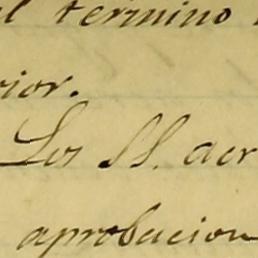 al termino
rior.
Los SS. acr
aprobacion